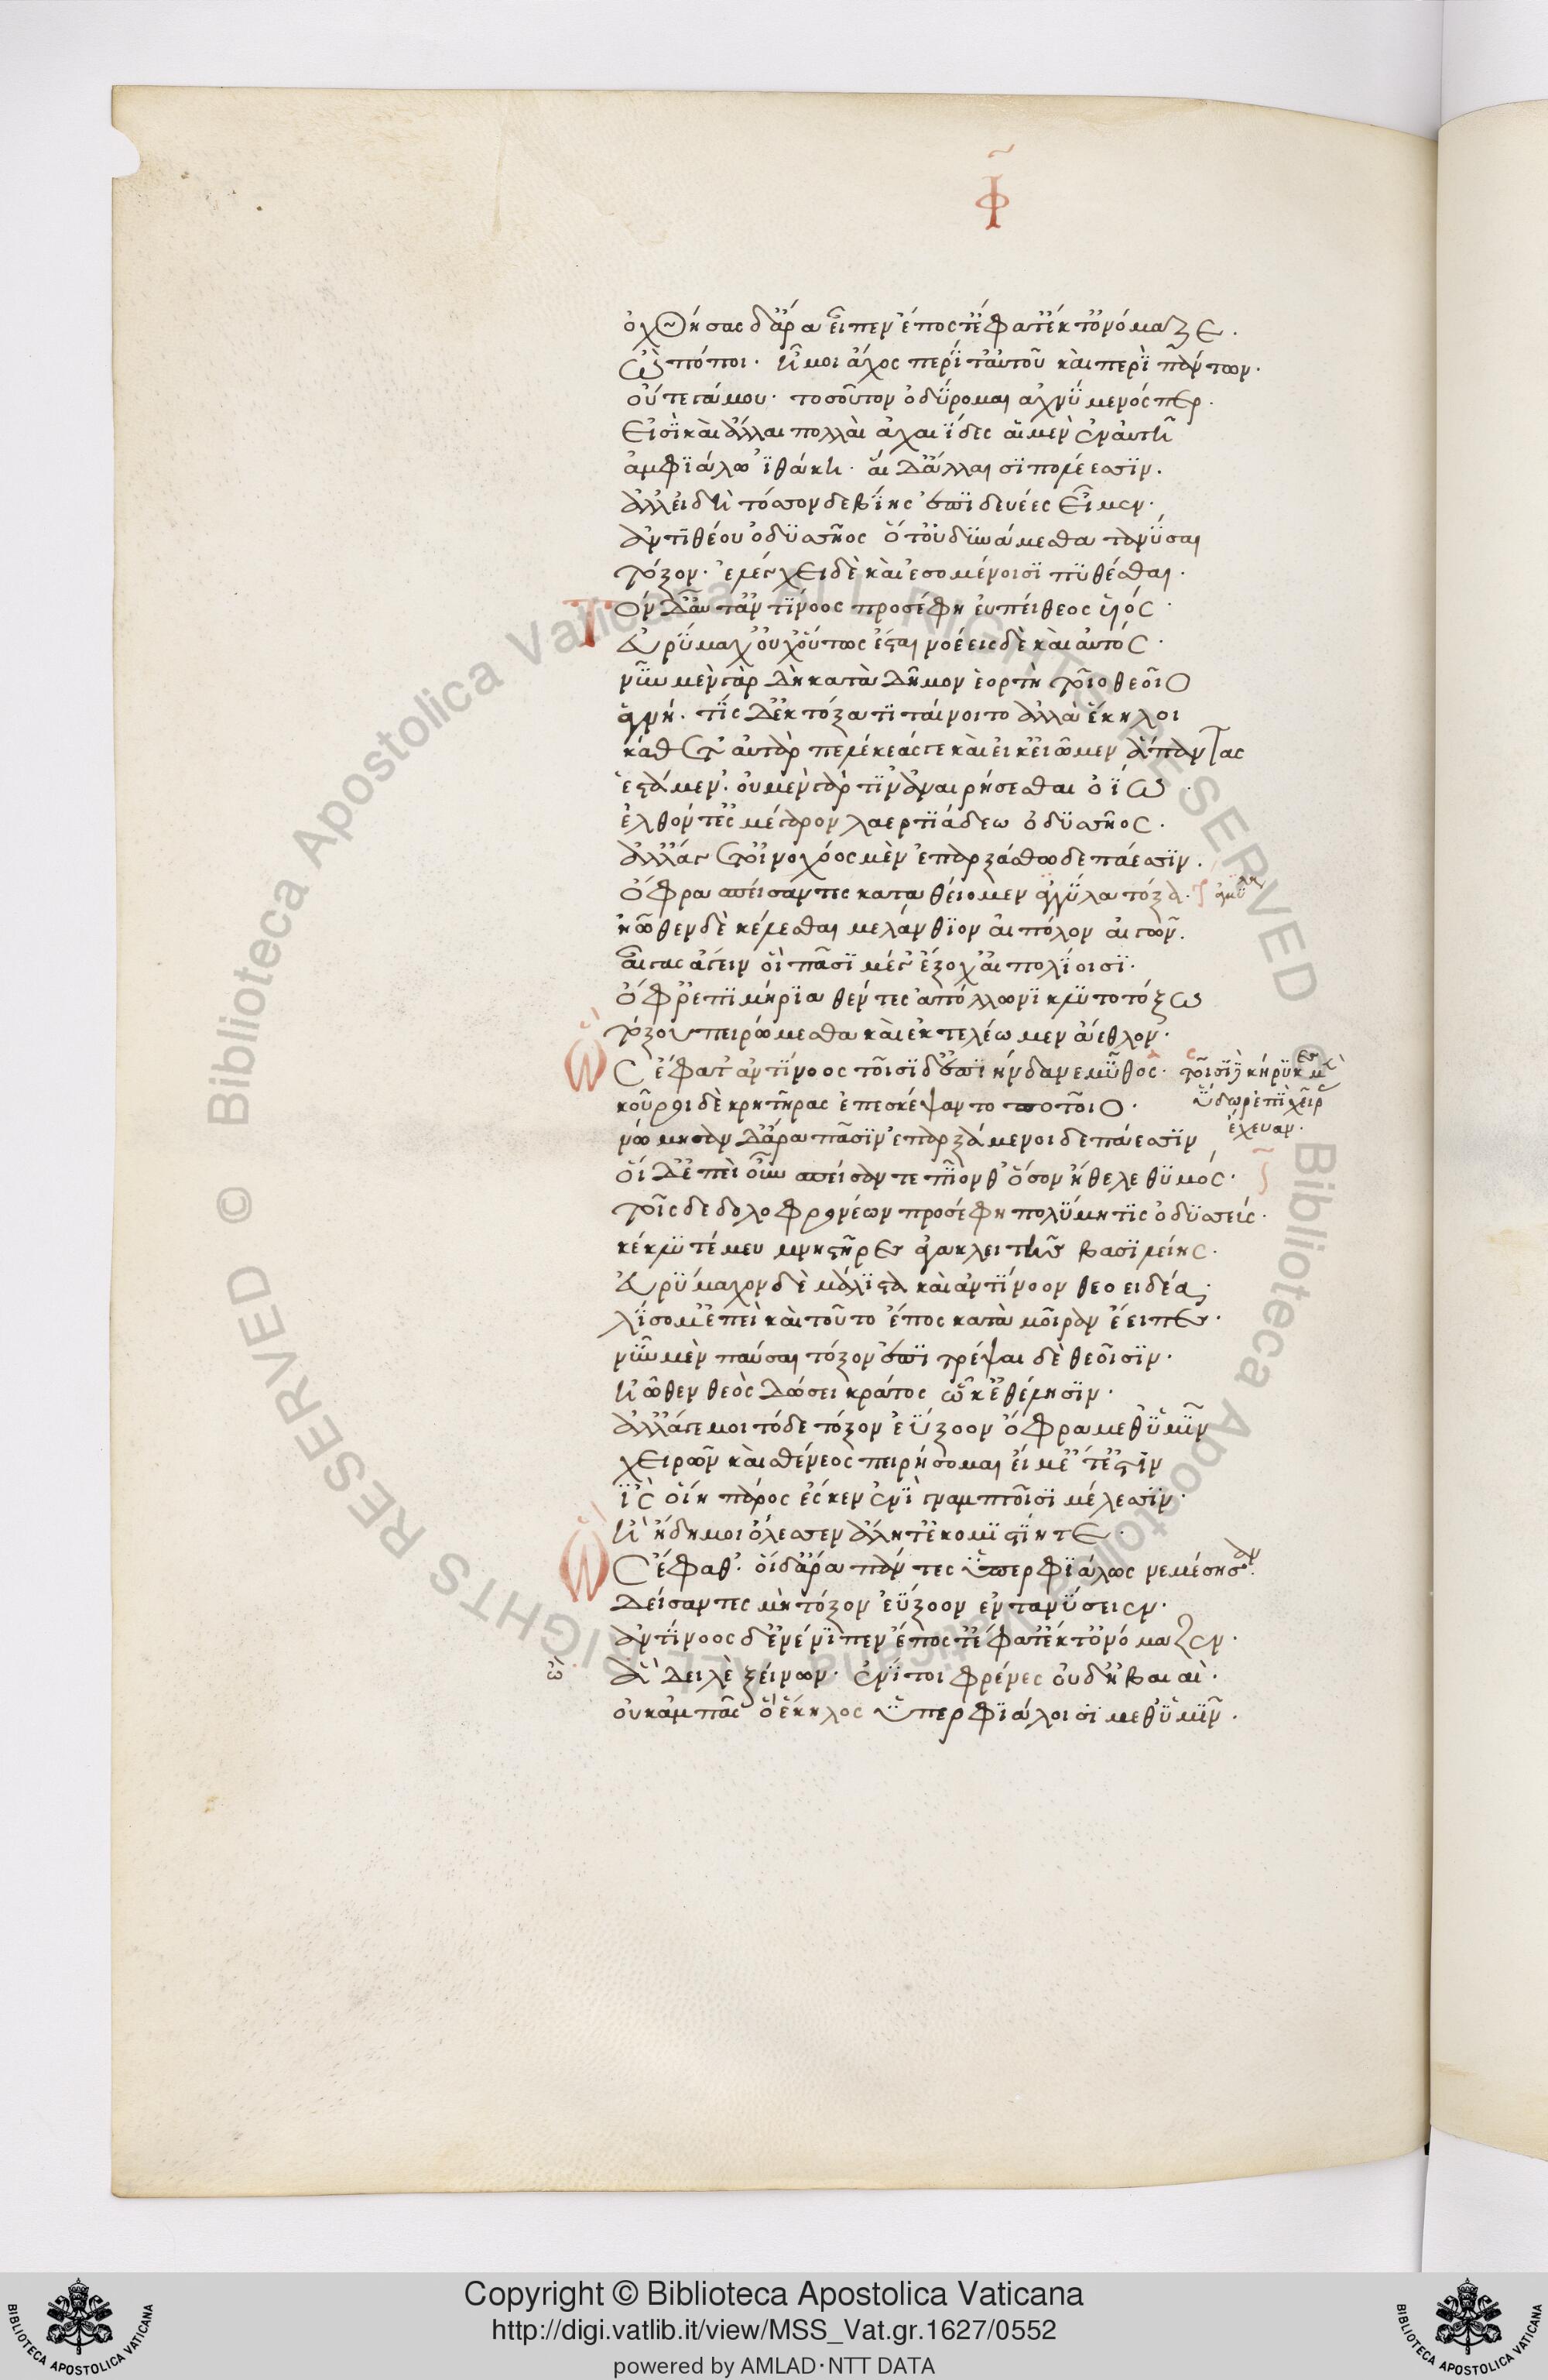 Φ
ὀχθήσας δ' ἄρα εἶπεν ἔπος τ' ἔφατ' ἔκ τ' ὀνόμαζε.
ὢ πόποι· ἦ μοι ἄχος περί τ' αὐτοῦ καὶ περὶ πάντων.
οὔτε γάμου· τοσοῦτον ὀδύρομαι ἀχνύμενός περ.
εἰσὶ καὶ ἄλλαι πολλαὶ ἀχαιΐδες αἱ μὲν ἐν αὐτῆ
ἀμφιάλω ἰθάκη· αἱ δ' ἄλλαισι πολέεσσιν.
ἀλλ' εἰ δὴ τόσσον δε βίης ἐπιδευέες εἶμεν·
ἀντιθέου ὀδυσσῆος ὅτ' οὐ δυνάμεσθα τανύσαι
τόξον· ἐλεγχείη δὲ καὶ ἐσομένοισι πυθέσθαι.
Τὸν δ' αὖτ' ἀντίνοος προσέφη εὐπείθεος υἱός·
εὐρύμαχ' οὐχ οὕτως ἔσται νοέεις δὲ καὶ αὐτός·
νῦν μὲν γὰρ δὴ κατὰ δῆμον ἑορτὴ τοῖο θεοῖο
ἁγνή· τίς δέ κ τόξα τιταίνοιτο ἀλλὰ ἕκηλοι
κάθετ' ἀτὰρ πελέκεάς γε καὶ εἴ κ' εἰῶμεν ἅπαντας
ἑστάμεν· οὐ μὲν γάρ τιν' ἀναιρήσεσθαι ὀΐω
ἐλθόντες μέγαρον λαερτιάδεω ὀδυσσῆος.
ἀλλ' ἄγετ' οἰνοχόος μὲν ἐπαρξάσθω δεπάεσσιν.
ὄφρα σπείσαντες καταθείομεν ἀγκύλα τόξα.
ἠῶθεν δὲ κέλεσθαι μελάνθιον αἰπόλον αἰγῶν.
αἶγας ἄγειν αἳ πᾶσι μέγ' ἔξοχ' αἰπολίοισι·
ὄφρ' ἐπὶ μηρία θέντες ἀπόλλωνι κλυτοτόξω
τόξου πειρώμεσθα καὶ ἐκτελέωμεν ἄεθλον·
Ὣς ἔφατ' ἀντίνοος τοῖσι δ' ἐπιήνδανε μῦθος· τοῖσι δὲ κήρυκες μὲν
ὕδωρ ἐπὶ χεῖρας
ἔχευαν.
κοῦροι δὲ κρητῆρας ἐπεσκέψαντο ποτοῖο·
νώμησαν δ' ἄρα πᾶσιν ἐπαρξάμενοι δεπάεσσιν
οἱ δ' ἐπεὶ οὖν σπεῖσάν τε πίον θ' ὅσον ἤθελε θυμός·
τοῖς δε δολοφρονέων προσέφη πολύμητις ὀδυσσεύς·
κέκλυτέ μευ μνηστῆρες ἀγακλειτῆς βασιλείης·
εὐρύμαχον δὲ μάλιστα καὶ ἀντίνοον θεοειδέα·
λίσσομ' ἐπεὶ καὶ τοῦτο ἔπος κατὰ μοῖραν ἔειπεν·
νῦν μὲν παῦσαι τόξον ἐπιτρέψαι δὲ θεοῖσιν·
ἠῶθεν θεὸς δώσει κράτος ᾧ κ' ἐθέλησιν·
ἀλλ' ἄγε μοι τόδε τόξον ἐΰξοον ὄφρα μεθ' ὑμῖν
χειρῶν καὶ σθένεος πειρήσομαι εἴ μ' ἔτ' ἔστιν
ἲς οἵη πάρος ἔσκεν ἐνὶ γναμπτοῖσι μέλεσσιν·
ἦ ἤδη μοι ὄλεσσεν ἄλη τ' ἀκομιστίη τε·
Ὣς ἔφαθ'· οἱ δ' ἄρα πάντες ὑπερφιάλως νεμέσησαν·
δείσαντες μὴ τόξον ἐΰξοον ἐντανύσειεν·
ἀντίνοος δ' ἐνένιπεν ἔπος τ' ἔφατ' ἔκ τ' ὀνόμαζεν·
ἆ δειλὲ ξείνων· ἔνι τοι φρένες οὐδ' ἠβαιαί·
οὐκ ἀγαπᾷς ὃ ἕκηλος ὑπερφιάλοισι μεθ' ὑμῖν·